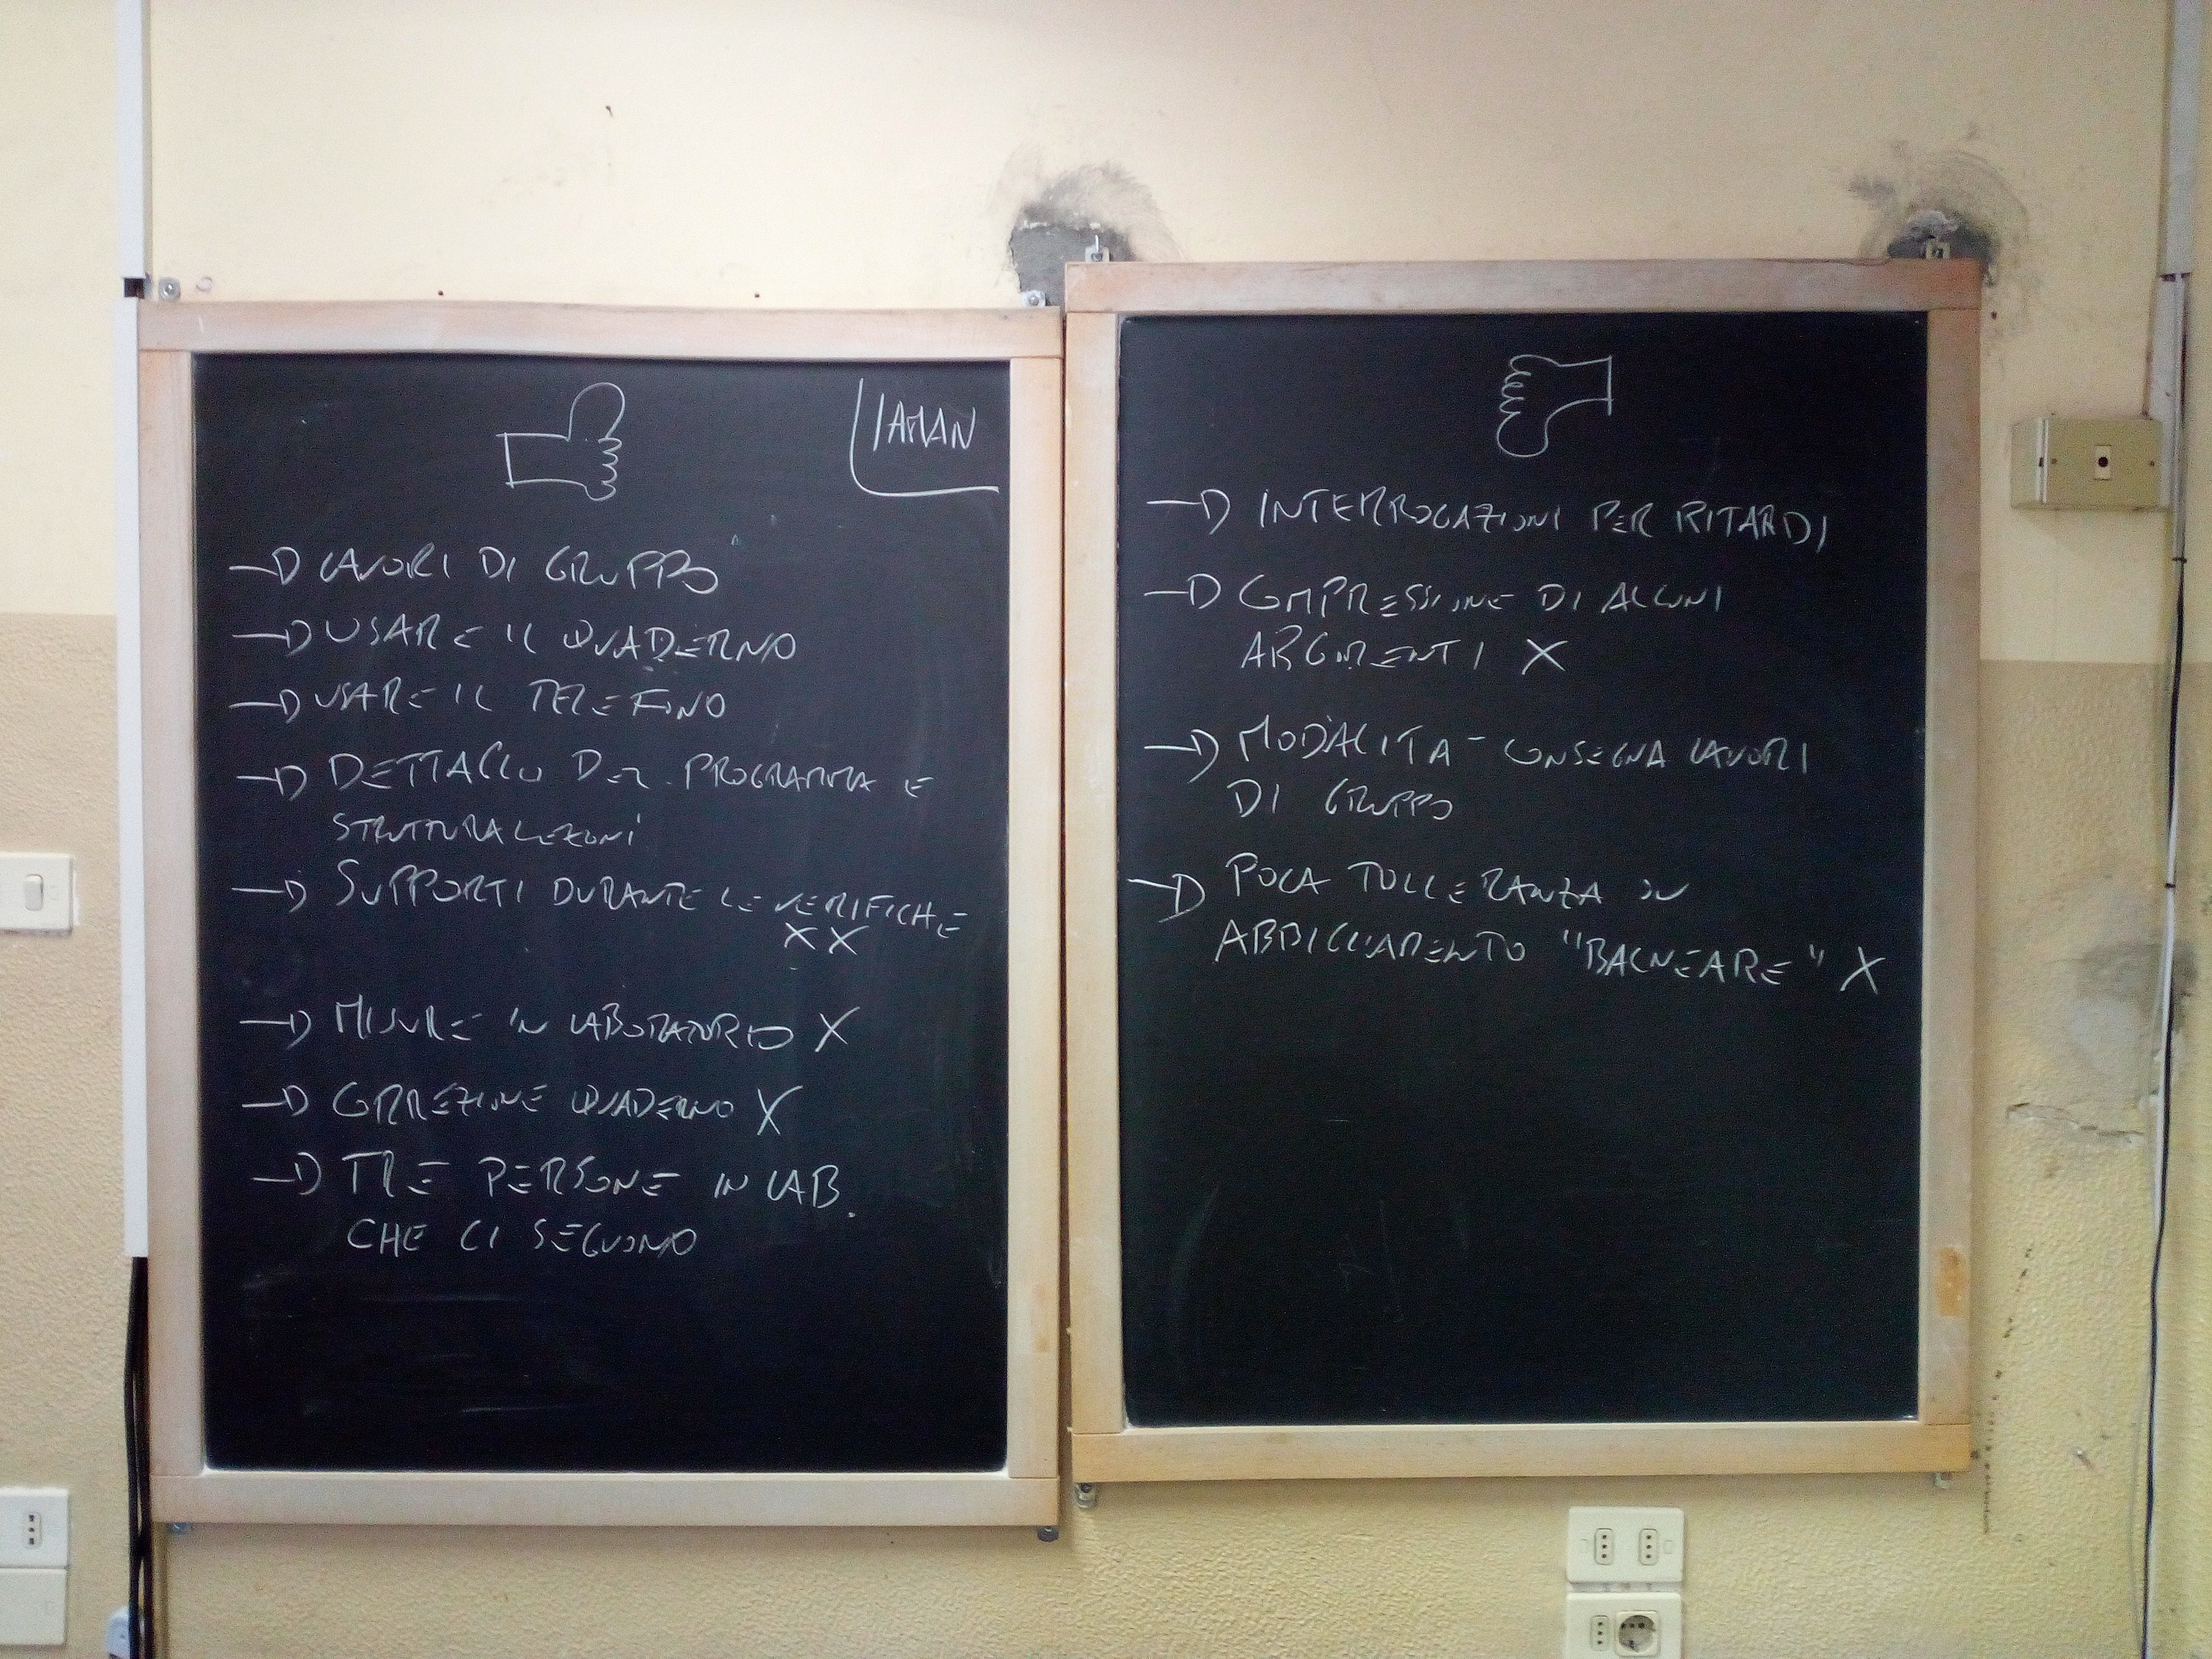 → LAVORI DI GRUPPO
→ USARE IL QUADERNO
→ USARE IL TELEFONO
→ DETTAGLIO DEL PROGRAMMA E
STRUTTURA LEZIONI
→ SUPPORTI DURANTE LE VERIFICHE
X X
→ MISURE IN LABORATORIO X
→ CORREZIONE QUADERNO X
→ TRE PERSONE IN LAB.
CHE CI SEGUONO
→ INTERROGAZIONI PER RITARDI
→ COMPRESSIONE DI ALCUNI
ARGOMENTI X
→ MODALITA - CONSEGNA LAVORI
DI GRUPPO
→ POCA TOLLERANZA SU
ABBIGLIAMENTO "BALNEARE" X